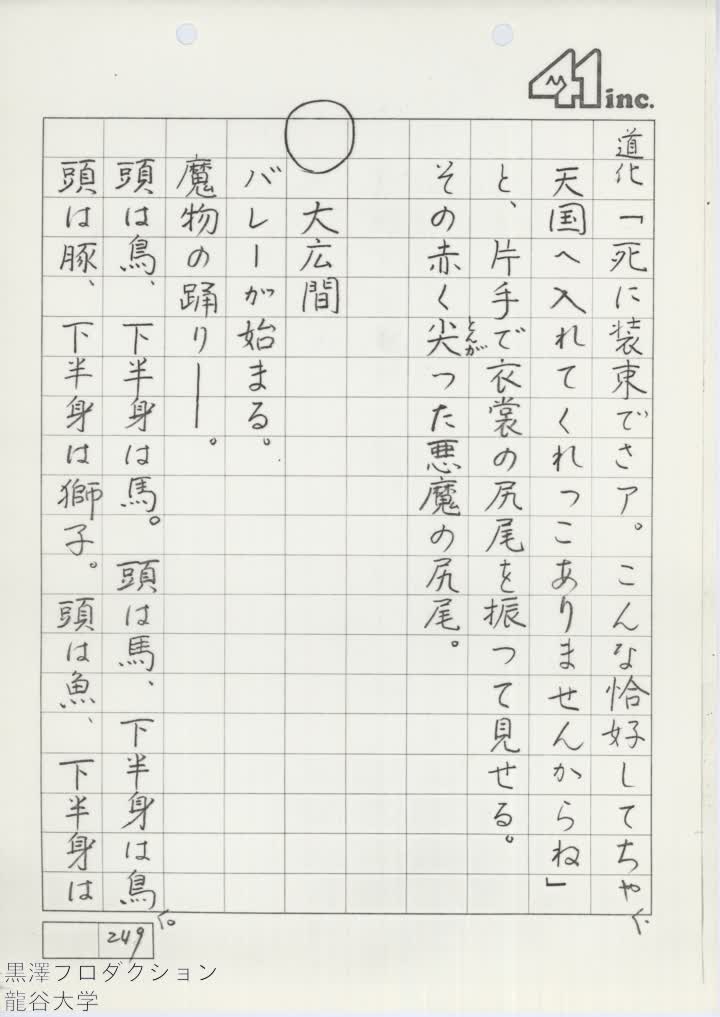 41 inc.
道化「死に装束でさア。こんな恰好してちゃ、
天国へ入れてくれっこありませんからね」
と、片手で衣裳の尻尾を振って見せる。
その赤く尖った悪魔の尻尾。
とんが
○ 大広間
バレーが始まる。
魔物の踊り――。
頭は鳥、下半身は馬。頭は馬、下半身は鳥。
頭は豚、下半身は獅子。頭は魚、下半身は
249
黒澤プロダクション
龍谷大学